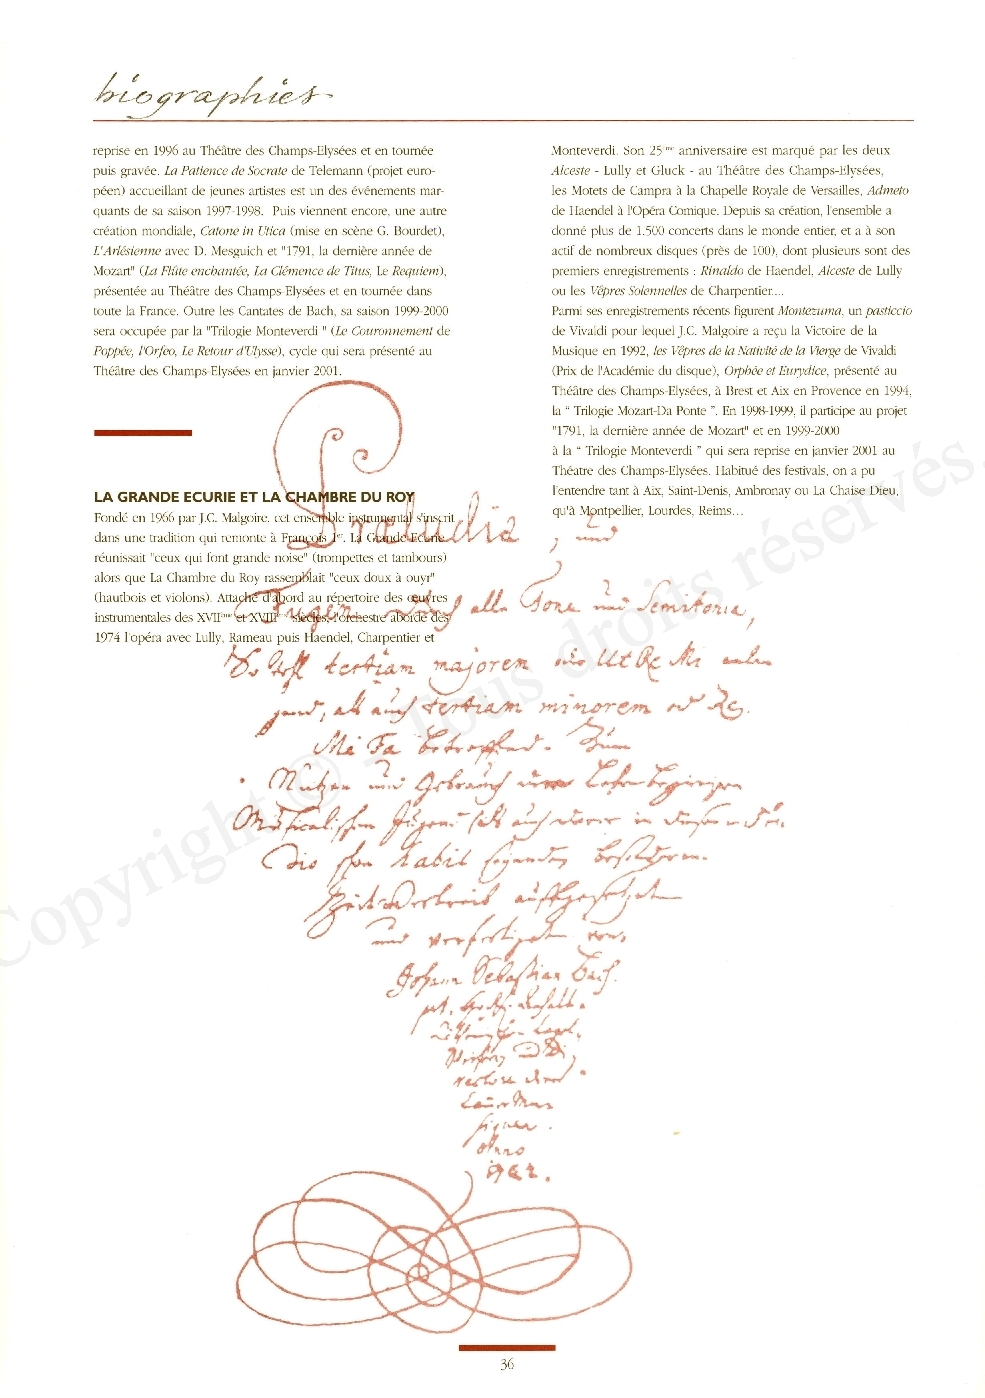 biographies
reprise en 1996 au Théâtre des Champs-Elysées et en tournée
puis gravée. La Patience de Socrate de Telemann (projet euro-
péen) accueillant de jeunes artistes est un des événements mar-
quants de sa saison 1997-1998. Puis viennent encore, une autre
création mondiale, Catone in Utica (mise en scène G. Bourdet),
L'Arlésienne avec D. Mesguich et "1791, la dernière année de
Mozart" (La Flûte enchantée, La Clémence de Titus, Le Requiem),
présentée au Théâtre des Champs-Elysées et en tournée dans
toute la France. Outre les Cantates de Bach, sa saison 1999-2000
sera occupée par la "Trilogie Monteverdi " (Le Couronnement de
Poppée, l'Orfeo, Le Retour d'Ulysse), cycle qui sera présenté au
Théâtre des Champs-Elysées en janvier 2001.
LA GRANDE ECURIE ET LA CHAMBRE DU ROY
Fondé en 1966 par J.C. Malgoire, cet ensemble instrumental s'inscrit
dans une tradition qui remonte à François Ier. La Grande Ecurie
réunissait "ceux qui font grande noise" (trompettes et tambours)
alors que La Chambre du Roy rassemblait "ceux doux à ouyr"
(hautbois et violons). Attaché d'abord au répertoire des œuvres
instrumentales des XVIIème et XVIIIème siècles, l'orchestre aborde dès
1974 l'opéra avec Lully, Rameau puis Haendel, Charpentier et
Monteverdi. Son 25ème anniversaire est marqué par les deux
Alceste - Lully et Gluck - au Théâtre des Champs-Elysées,
les Motets de Campra à la Chapelle Royale de Versailles, Admeto
de Haendel à l'Opéra Comique. Depuis sa création, l'ensemble a
donné plus de 1.500 concerts dans le monde entier, et a à son
actif de nombreux disques (près de 100), dont plusieurs sont des
premiers enregistrements : Rinaldo de Haendel, Alceste de Lully
ou les Vêpres Solennelles de Charpentier....
Parmi ses enregistrements récents figurent Montezuma, un pasticcio
de Vivaldi pour lequel J.C. Malgoire a reçu la Victoire de la
Musique en 1992, les Vêpres de la Nativité de la Vierge de Vivaldi
(Prix de l'Académie du disque), Orphée et Eurydice, présenté au
Théâtre des Champs-Elysées, à Brest et Aix en Provence en 1994,
la " Trilogie Mozart-Da Ponte ". En 1998-1999, il participe au projet
"1791, la dernière année de Mozart" et en 1999-2000
à la " Trilogie Monteverdi " qui sera reprise en janvier 2001 au
Théatre des Champs-Elysées. Habitué des festivals, on a pu
l'entendre tant à Aix, Saint-Denis, Ambronay ou La Chaise Dieu,
qu'à Montpellier, Lourdes, Reims...
Præludia, und
Fugen durch alle Tone und Semitonia,
So wohl tertiam majorem oder Ut Re Mi anlan
gend, als auch tertiam minorem od Re
Mi Fa betreffend. Zum
Nutzen und Gebrauch der Lehrbegierigen
Musicalischen Jugend als auch derer in diesem studio
schon habil seyenden besonderem
Zeitvertreib auffgesetzet
und verfertiget von
Johann Sebastian Bach.
Anno
1722.
36
Copyright © Tous droits réservés.